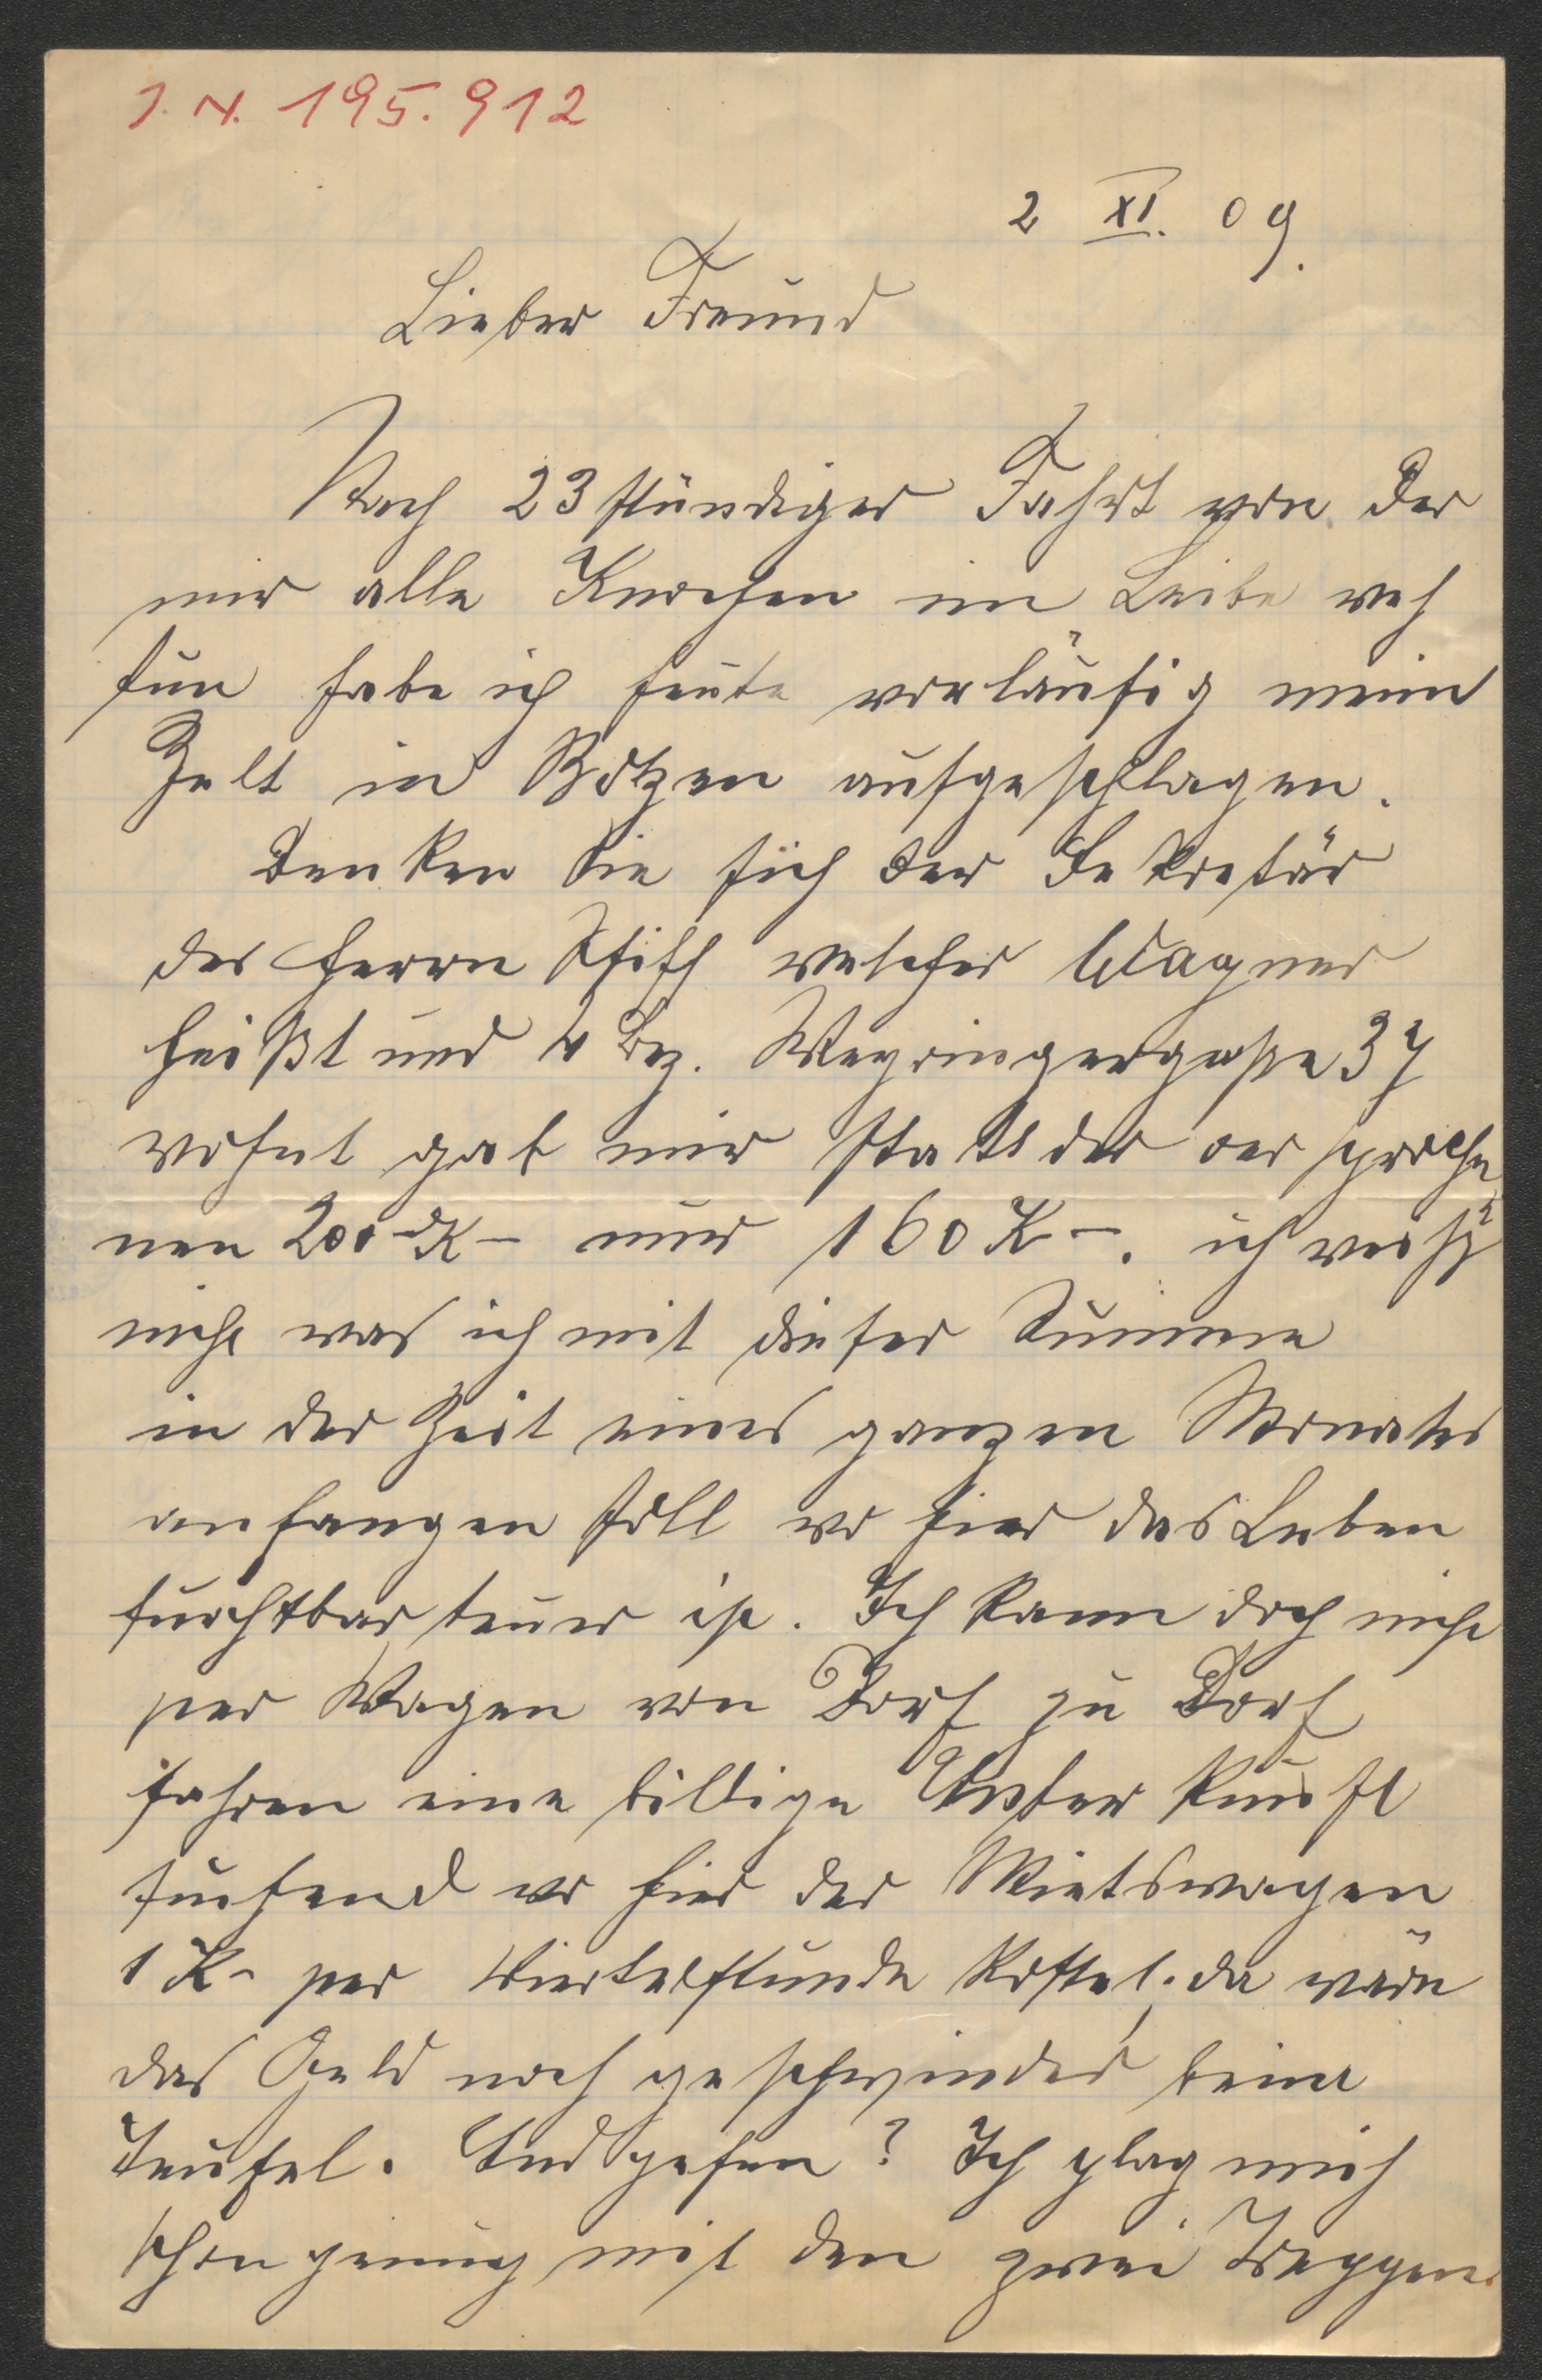 J. N. 195.912
2 XI. 09.
Lieber Freund
Nach 23 stündiger Fahrt von der
mir alle Knochen im Leibe weh
tun habe ich heute vorläufig mein
Zelt in Botzen aufgeschlagen.
Denken Sie sich der Sekretär
des Herrn welcher Wagner
heißt und 4 Bez. Weyringergasse 37
wohnt gab mir statt der versproche
nen 200 K- nur 160 K-. ich weiß
nicht was ich mit dieser Summe
in der Zeit eines ganzen Monates
anfangen soll wo hier das Leben
furchtbar teuer ist. Ich kann doch nicht
per Wagen von Dorf zu Dorf
fahren eine billige Unterkunft
suchend wo hier der Mietswagen
1 K- per Viertelstunde kostet; da wäre
das Geld noch geschwinder beim
Teufel. Und gehen? Ich plag mich
schon genug mit den zwei Treppen.